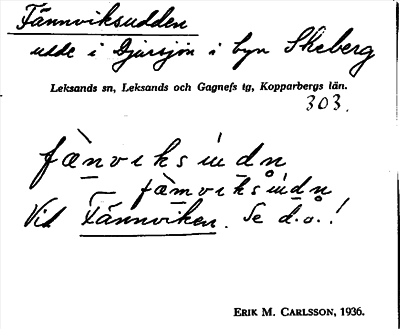 Fännviksudden
udde i Djursjön i byn Skeberg
Leksands sn, Leksands och Gagnefs tg, Kopparbergs län.
303.
fænviksúdn
fæmviksúdn
Vid Fännviken. Se d.o.!
ERIK M. CARLSSON, 1936.